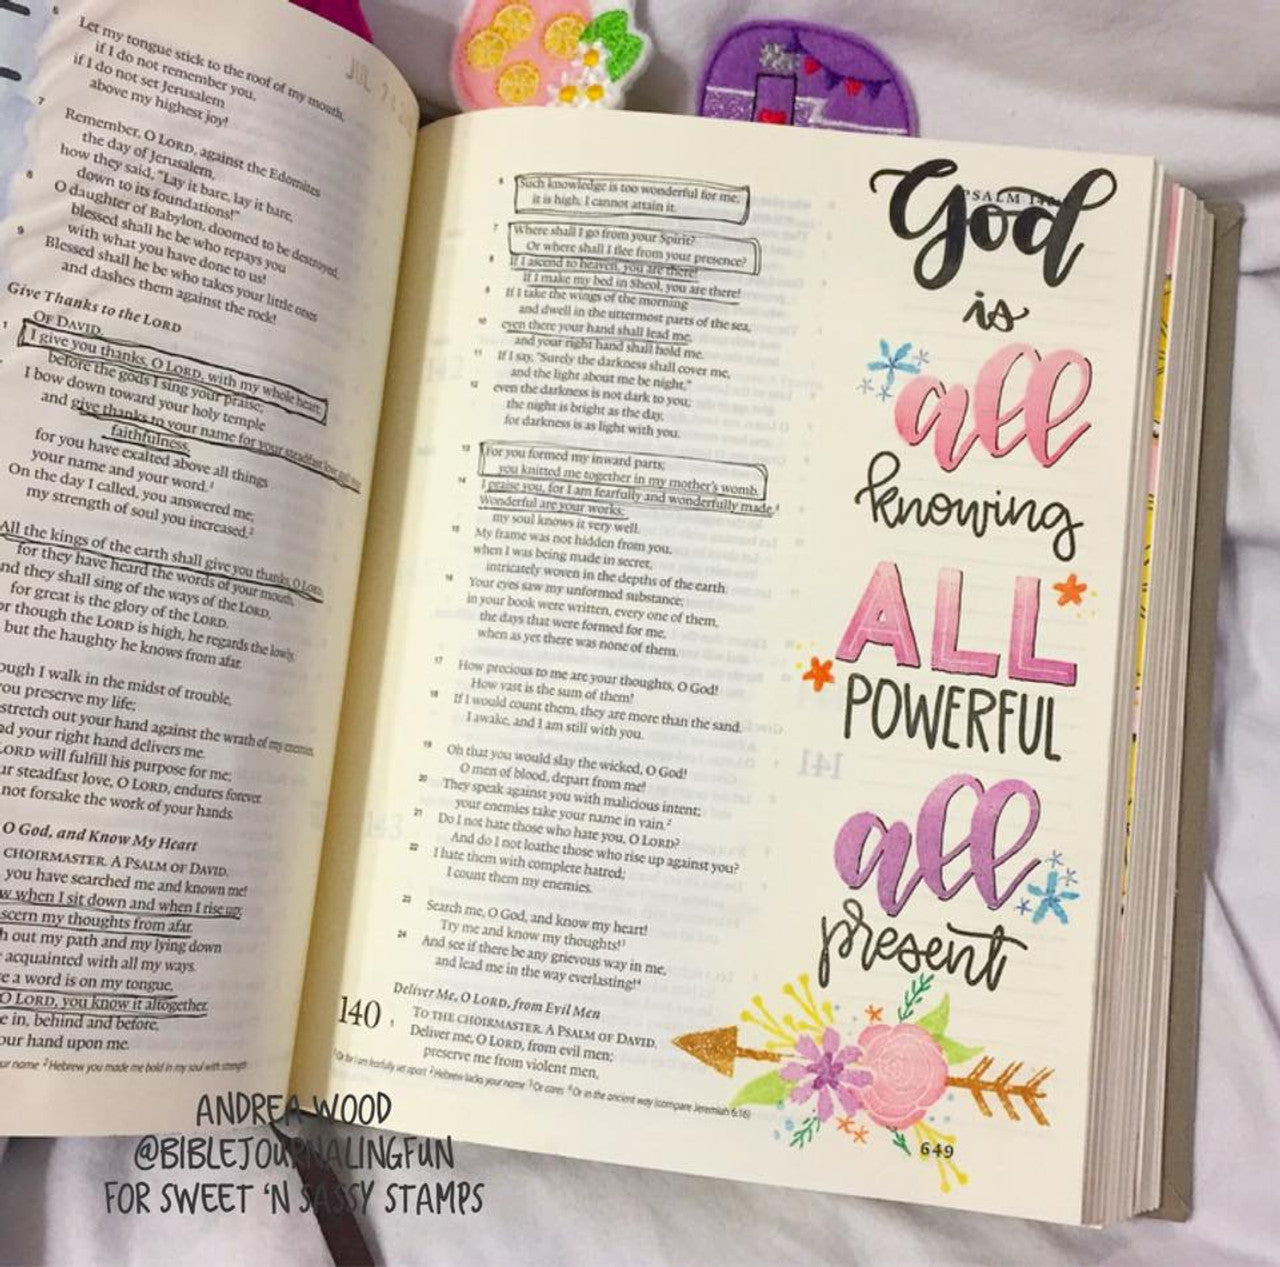 6 Let my tongue stick to the roof of my mouth,
if I do not remember you,
if I do not set Jerusalem
above my highest joy!
7 Remember, O LORD, against the Edomites
the day of Jerusalem,
how they said, "Lay it bare, lay it bare,
down to its foundations!"
8 O daughter of Babylon, doomed to be destroyed,
blessed shall he be who repays you
with what you have done to us!
9 Blessed shall he be who takes your little ones
and dashes them against the rock!
Give Thanks to the LORD
OF DAVID.
1 I give you thanks, O LORD, with my whole heart;
before the gods I sing your praise;
I bow down toward your holy temple
and give thanks to your name for your steadfast love and your
faithfulness,
for you have exalted above all things
your name and your word.¹
On the day I called, you answered me;
my strength of soul you increased.²
All the kings of the earth shall give you thanks, O LORD,
for they have heard the words of your mouth,
nd they shall sing of the ways of the LORD,
for great is the glory of the LORD.
or though the LORD is high, he regards the lowly,
but the haughty he knows from afar.
ough I walk in the midst of trouble,
ou preserve my life;
stretch out your hand against the wrath of my enemies,
d your right hand delivers me.
LORD will fulfill his purpose for me;
ur steadfast love, O LORD, endures forever.
not forsake the work of your hands.
O God, and Know My Heart
CHOIRMASTER. A PSALM OF DAVID.
you have searched me and known me!
w when I sit down and when I rise up;
scern my thoughts from afar.
h out my path and my lying down
acquainted with all my ways.
e a word is on my tongue,
O LORD, you know it altogether.
e in, behind and before,
our hand upon me.
ur name ² Hebrew you made me bold in my soul with strength
6 Such knowledge is too wonderful for me;
it is high; I cannot attain it.
7 Where shall I go from your Spirit?
Or where shall I flee from your presence?
8 If I ascend to heaven, you are there!
If I make my bed in Sheol, you are there!
9 If I take the wings of the morning
and dwell in the uttermost parts of the sea,
10 even there your hand shall lead me,
and your right hand shall hold me.
11 If I say, "Surely the darkness shall cover me,
and the light about me be night,"
12 even the darkness is not dark to you;
the night is bright as the day,
for darkness is as light with you.
13 For you formed my inward parts;
you knitted me together in my mother's womb.
14 I praise you, for I am fearfully and wonderfully made.¹
Wonderful are your works;
my soul knows it very well.
15 My frame was not hidden from you,
when I was being made in secret,
intricately woven in the depths of the earth.
16 Your eyes saw my unformed substance;
in your book were written, every one of them,
the days that were formed for me,
when as yet there was none of them.
17 How precious to me are your thoughts, O God!
How vast is the sum of them!
18 If I would count them, they are more than the sand.
I awake, and I am still with you.
19 Oh that you would slay the wicked, O God!
O men of blood, depart from me!
20 They speak against you with malicious intent;
your enemies take your name in vain.²
21 Do I not hate those who hate you, O LORD?
And do I not loathe those who rise up against you?
22 I hate them with complete hatred;
I count them my enemies.
23 Search me, O God, and know my heart!
Try me and know my thoughts!³
24 And see if there be any grievous way in me,
and lead me in the way everlasting!⁴
Deliver Me, O LORD, from Evil Men
TO THE CHOIRMASTER. A PSALM OF DAVID.
140 1 Deliver me, O LORD, from evil men;
preserve me from violent men,
¹ Or for I am fearfully set apart ² Hebrew lacks your name ³ Or cares ⁴ Or in the ancient way (compare Jeremiah 6:16)
PSALM
God
is
all
knowing
ALL
POWERFUL
all
present
649
ANDREA WOOD
@BIBLEJOURNALINGFUN
FOR SWEET 'N SASSY STAMPS